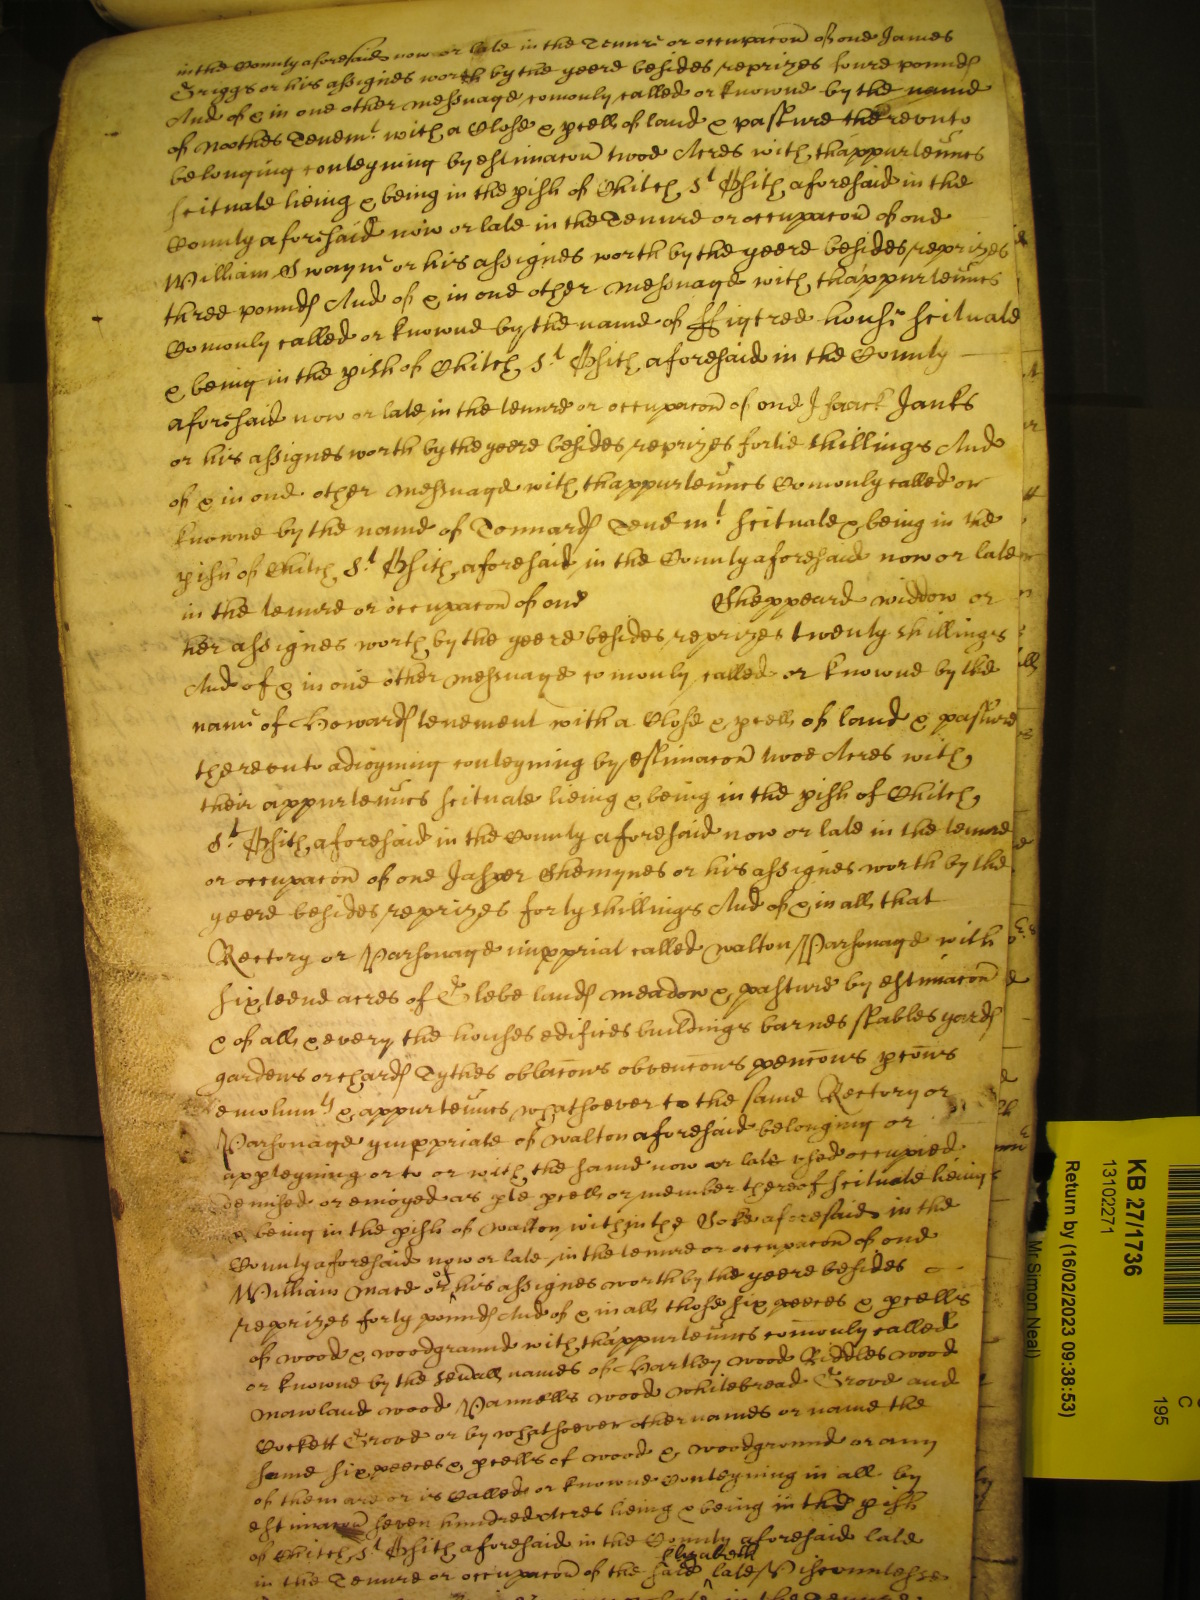 in the County aforesaid now or late in the Tenure or occupacon of one James
Griggs or his assignes worth by the yeere besides reprizes foure pounds
And of & in one other messuage comonly called or knowne by the name
of Noothes Tenemt with a Close & pcell of land & pasture therevnto
belonging conteyning by estimacon twoe Acres with thappurtennces
scituate lieing & being in the pish of Chitch St Osith aforesaid in the
County aforesaid now or late in the Tenure or occupacon of one
William Swayne or his assignes worth by the yeere besides reprizes
three pounds And of & in one other messuage with thappurtennces
Comonly called or knowne by the name of ffigtree house scituate
& being in the pish of Chitch St Osith aforesaid in the County
aforesaid now or late in the tenure or occupacon of one Isaack Janks
or his assignes worth by the yeere besides reprizes fortie shillings And
of & in one other messuage with thappurtennces Comonly called or
knowne by the name of Tonnards Tenemt scituate & being in the
pish of Chitch St Osith aforesaid in the County aforesaid now or late
in the tenure or occupacon of one Sheppeard widdow or
her assignes worth by the yeere besides reprizes twenty shillings
And of & in one other messuage comonly called or knowne by the
name of Howards tenement with a Close & pcell of land & pasture
therevnto adioyning conteyning by estimacon twoe Acres with
their appurtennces scituate lieing & being in the pish of Chitch
St Osith aforesaid in the County aforesaid now or late in the tenure
or occupacon of one Jasper Shemynes or his assignes worth by the
yeere besides reprizes forty shillings And of & in all that
Rectory or Parsonage impriat called Walton Parsonage with
sixteene acres of Glebe lands meadow & pasture by estimacon
& of all & every the houses edifices buildings barnes stables yards
gardens orchards Tythes oblacons obvencons pencons pcons
emolumts & appurtennces whatsoever to the same Rectory or
Parsonage ymppriate of Walton aforesaid belonging or
apperteyning or to or with the same now or late vsed occupied
demised or enioyed as pte pcell or member thereof scituate lieing
& being in the pish of Walton within the Soke aforesaid in the
County aforesaid now or late in the tenure or occupacon of one
William Mace or his assignes worth by the yeere besides
reprizes forty pounds And of & in all those six peeces & pcells
of wood & woodground with thappurtennces comonly called
or knowne by the severall names of Hartley wood Riddles wood
Mawland wood Pannells wood Whitebread Grove and
Cockett Grove or by whatsoever other names or name the
same six peeces & pcells of wood & woodground or any
of them are or is Called or knowne Conteyning in all by
estimacon seven hundred Acres lieing & being in the pish
of Chitch St Osith aforesaid in the County aforesaid late
in the Tenure or occupacon of the said Elizabeth late Viscountesse
KB 27/1736
13102271
Return by (16/02/2023 09:38:53)
Mr Simon Neal)
C
195